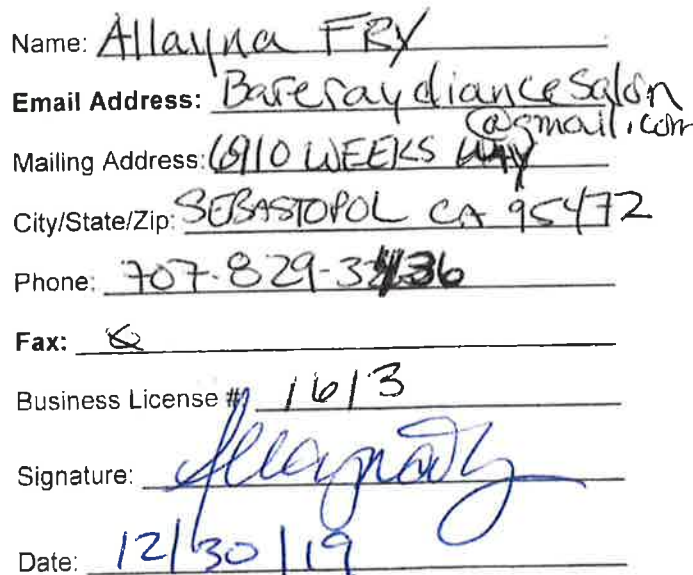 Name: Allayna FRY
Email Address: Bareraydiancesalon
@gmail.com
Mailing Address: 6910 WEEKS WAY
City/State/Zip: SEBASTOPOL CA 95472
Phone: 707-829-3
Fax:
Business License #: 1613
Signature:
Date: 12/30/19